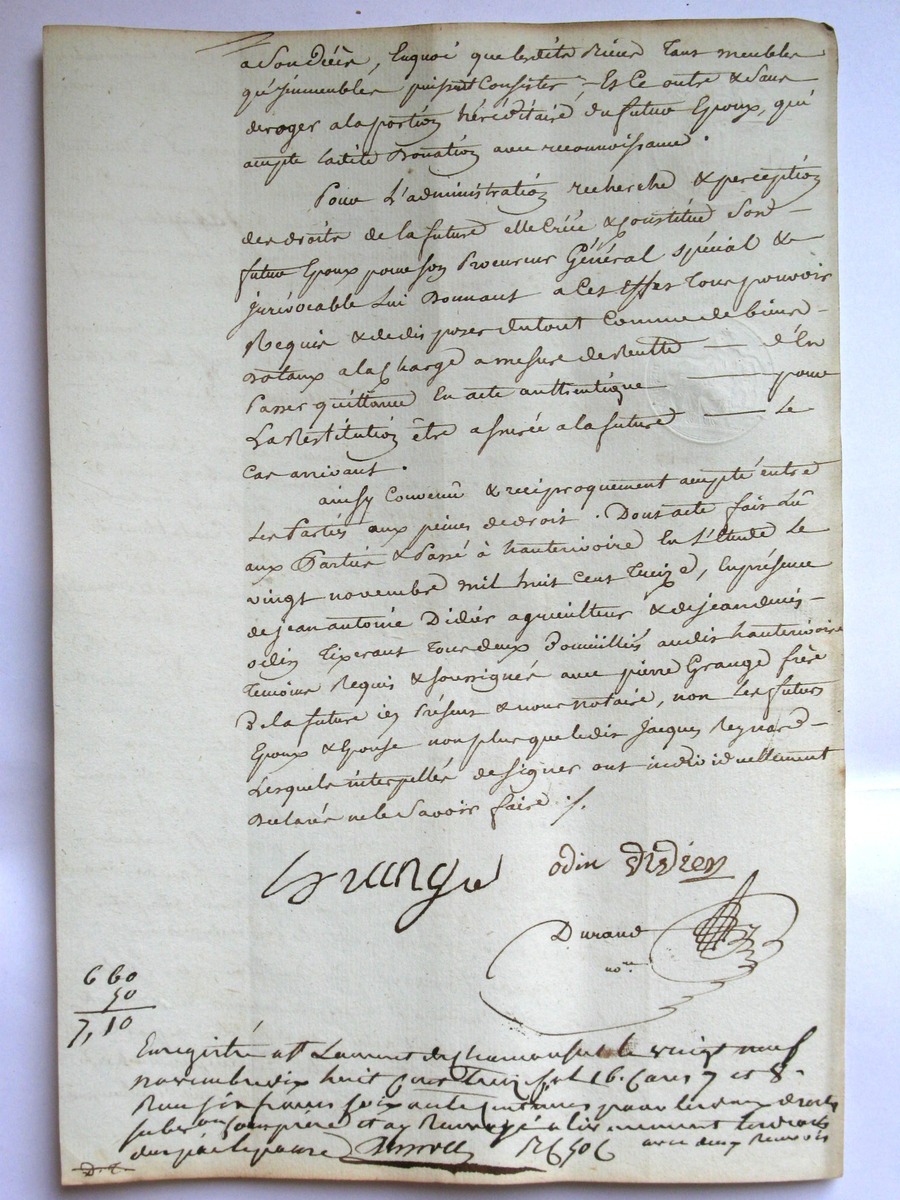 a Son décès, En quoi que lesdits Biens Tant meubles
qu'immeubles puissent Consister. Et Ce outre & Sans
deroger a la portion héréditaire du futur Epoux, qui
accepte ladite Donation avec reconnoissance.
Pour L'administration recherche & perception
des droits de la future elle Crée & Constitue Son
futur Epoux pour Son Procureur Général spécial &
irrévocable Lui Donnant a Ces effets Tous pouvoirs
Requis & de disposer du tout Comme de biens
dotaux a la Charge a mesure de Recette — d'En
Passer quittance En acte authentique — pour
La Restitution être assurée a la future — Le
Cas arrivant.
ainsy Convenu & réciproquement accepté entre
Les Parties aux peines de droit. Dont acte fait Lû
aux Parties & Passé à hauterivoire En L'Etude Le
vingt novembre mil huit Cent Treize, En présence
de jean antoine Didier agriculteur & de jean denis
odin Tixerant Tous deux Domiciliés audit hauterivoire
Témoins Requis & soussignés avec pierre Grange frère
De la future ici Présent & nous notaire, non Les futurs
Epoux & Epouse non plus que ledit Jacques Reynard
Lesquels interpellés de signer ont individuellement
Déclarés ne le Savoir faire ./.
Grange odin Didier
Durand
nore
6 60
50
7,10
Enregistré a St Laurent de Chamousset le vingt neuf
novembre dix huit Cent treize fol 16. Cases 7 et 8.
Reçu six francs soixante Centimes pour les deux droits